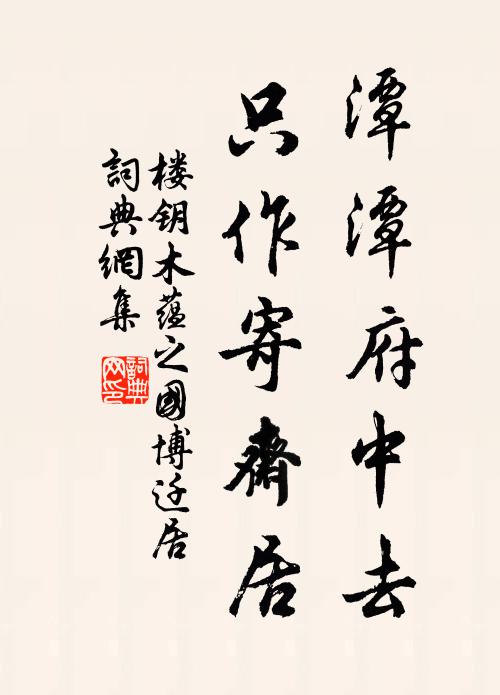 潭潭府中去
只作寄齋居
楼钥木蕴之國博迁居
詞典網集
詞典网印